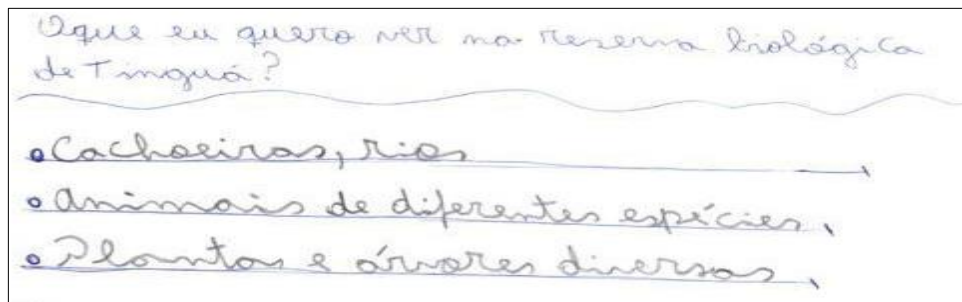 Oque eu quero ver na reserva biológica
de Tinguá?
• Cachoeiras, rios
• Animais de diferentes espécies,
• Plantas e árvores diversas,